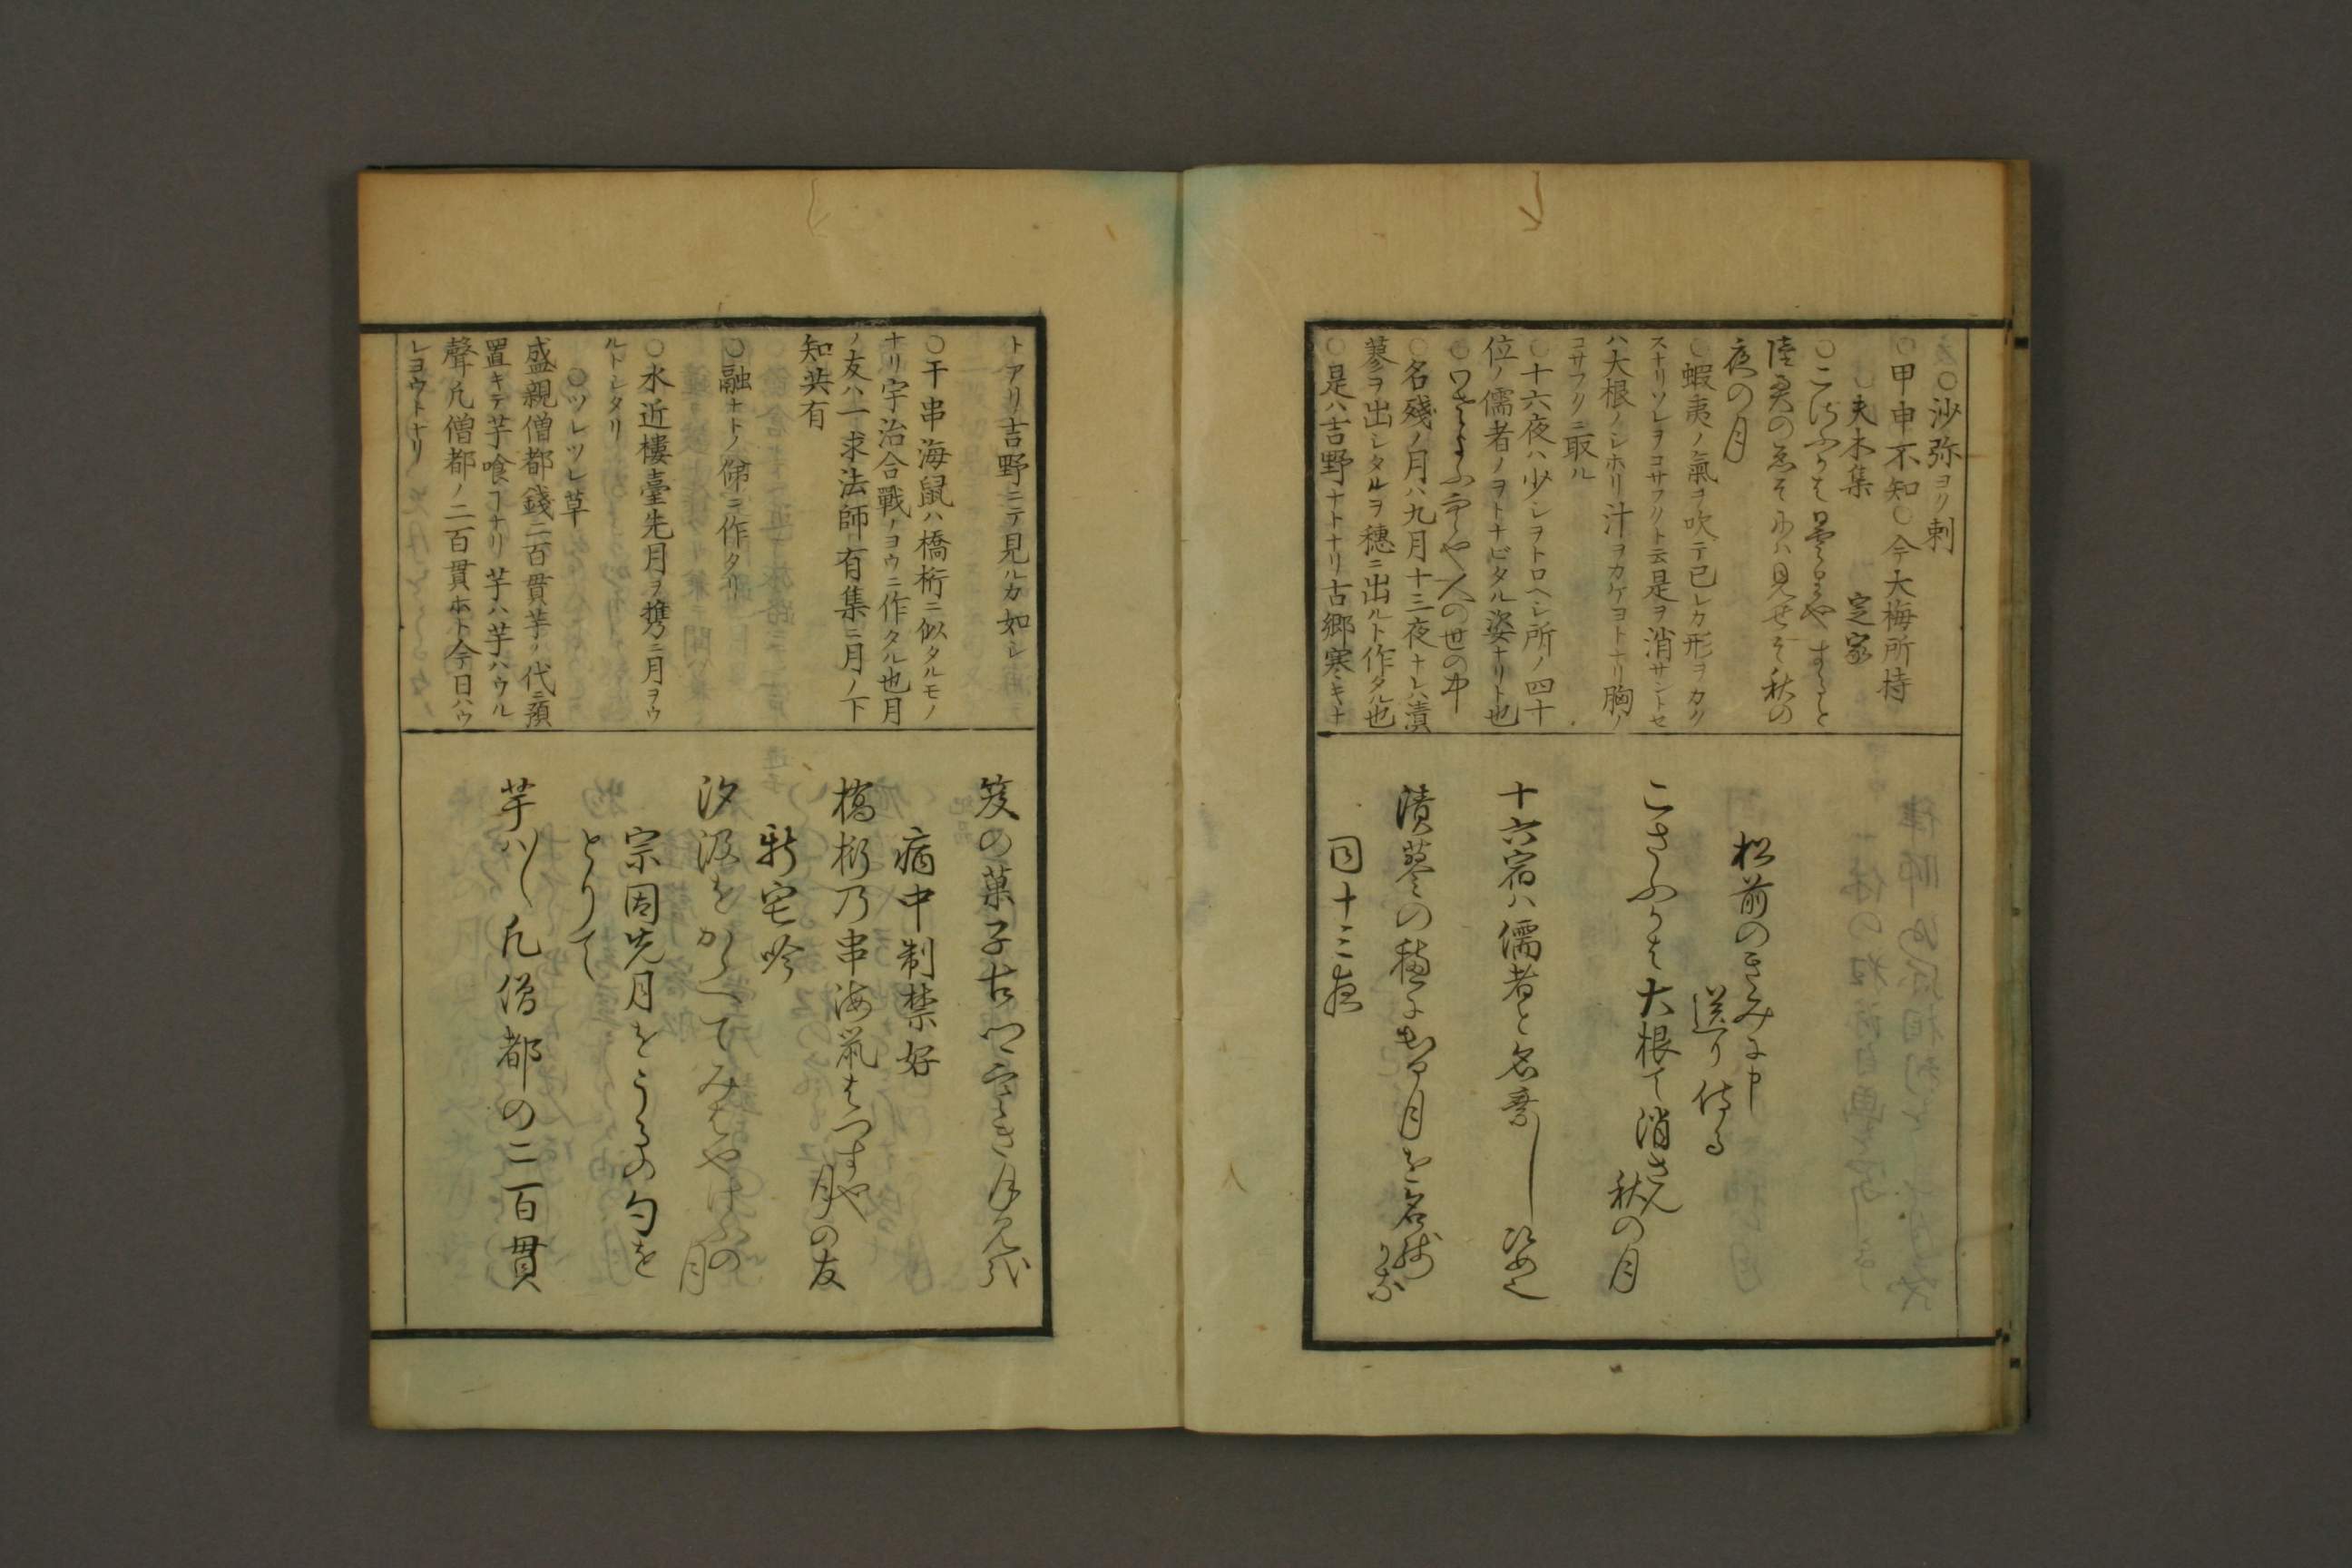 ○沙弥ヨリ剌
○甲申不知○今大梅所持
○夫木集　定家
○こさふかは曇もやする
陸奥のゑそには見せそ秋の
夜の月
○蝦夷ノ氣ヲ吹テ己レカ形ヲカク
スナリソレヲコサフクト云是ヲ消サントセ
ハ大根ノシホリ汁ヲカケヨトナリ胸ノ
コサフクニ取ル
○十六夜ハ少シヲトロヘシ所ノ四十
位ノ儒者ノヲトナビタル姿ナリト也
人の世の中
○名殘ノ月ハ九月十三夜ナレハ漬
蓼ヲ出シタルヲ穂ニ出ルト作タル也
○是ハ吉野ナトナリ古郷寒キナ
松前のきみに申
送り侍る
こさふかは大根て消さん
秋の月
十六宿ハ儒者と名乗し姿
漬蓼の穂に出る月を名残
かな
同十三夜
トアリ吉野ニテ見ルカ如シ
○干串海鼠ハ橋桁ニ似タルモノ
ナリ宇治合戰ノヨウニ作タル也月
ノ友ハ一求法師有集ニ月ノ下
知共有
○融ナトノ俤ニ作タリ
○水近樓臺先月ヲ携ニ月ヲウ
ルトシタリ
○ツレツレ草
盛親僧都錢二百貫芋ノ代ニ預
置キテ芋喰フナリ芋ハ芋ハウル
聲凡僧都ノ二百貫ホト今日ハウ
レヨウトナリ
笈の菓子古郷寒き月見哉
病中制禁好
橋桁乃串海鼠はつすや
月の友
新宅吟
汐汲をかゝへてみはやけふの
月
宗因先月をうるの句を
とりて
芋ハ〱凡僧都の二百貫